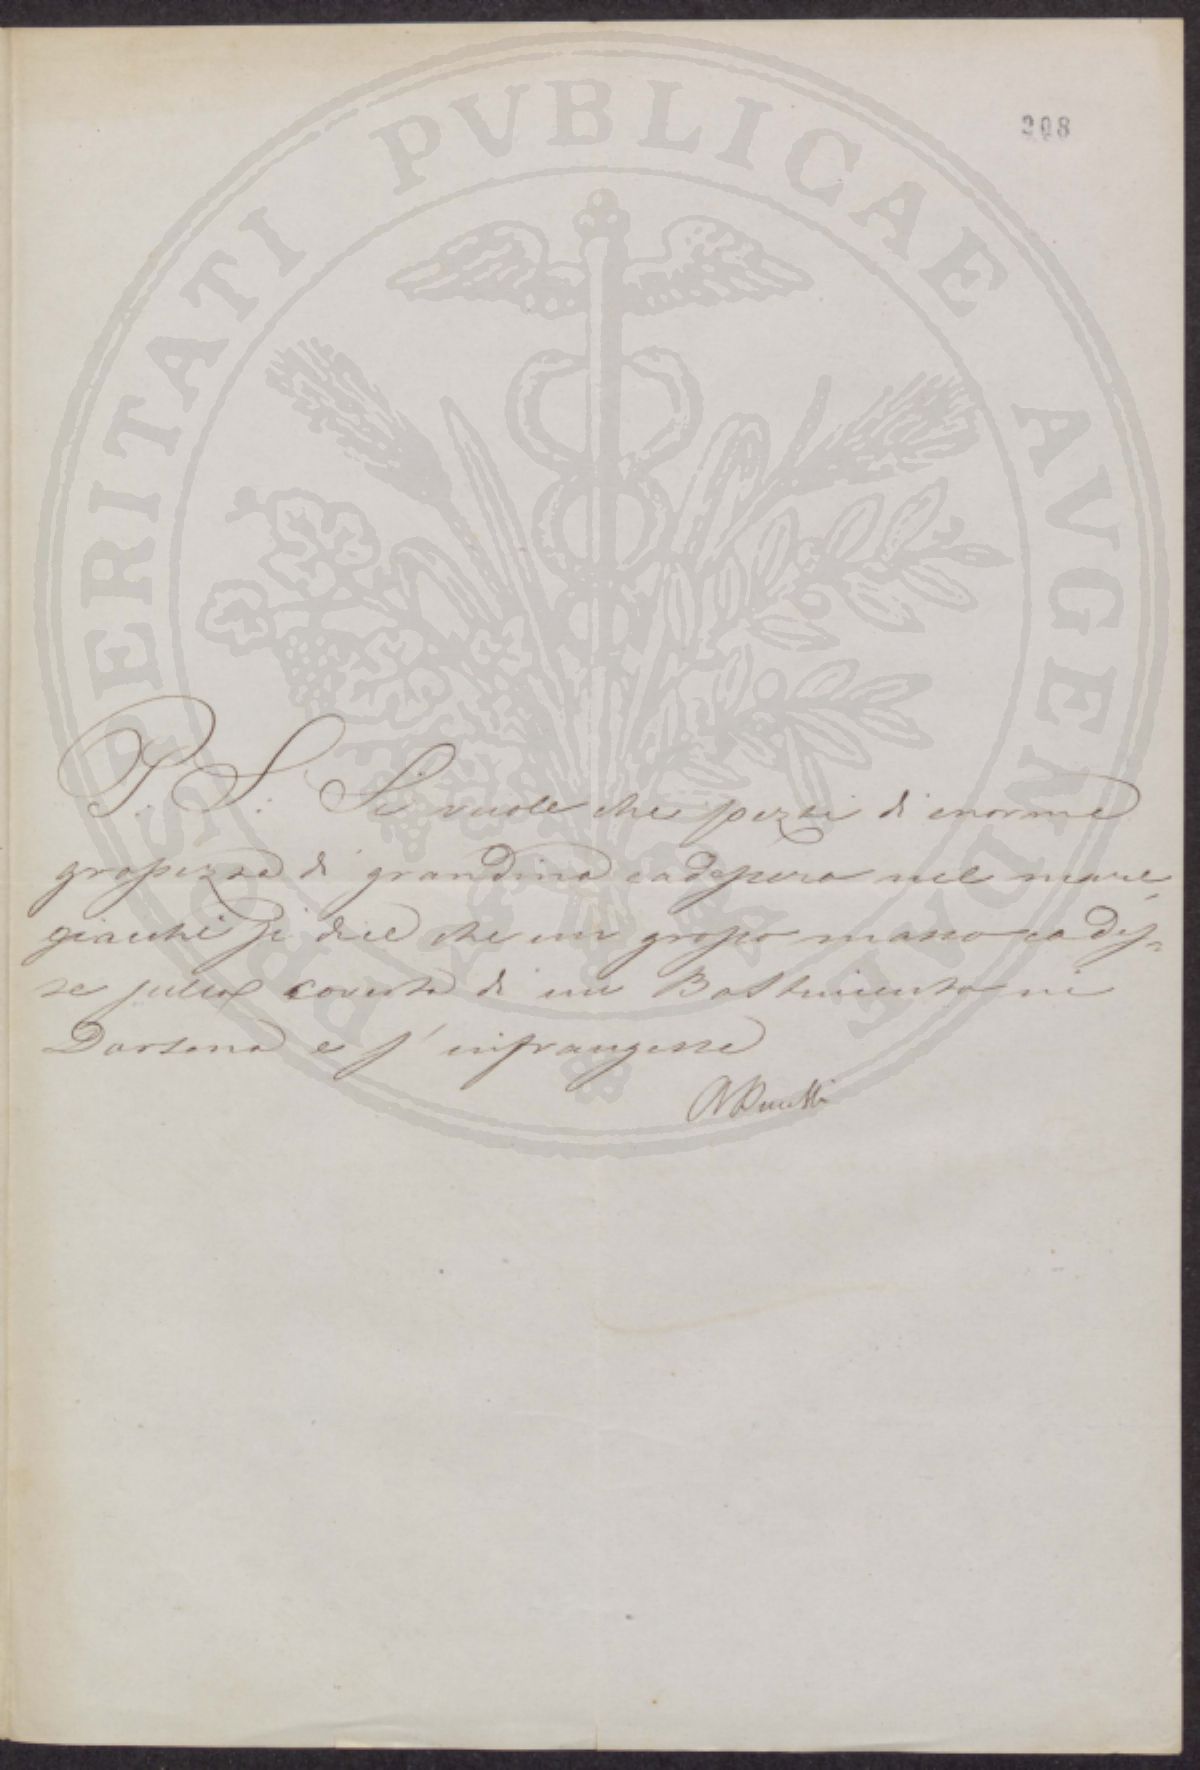 PROSPERITATI PVBLICAE AVGENDAE
208
P. S. Si vuole che pezzi di enorme
grossezza di grandine cadessero nel mare,
giacché si dice che un grosso masso cades=
se sulla coverta di un Bastimento in
Darsena e s'infrangesse